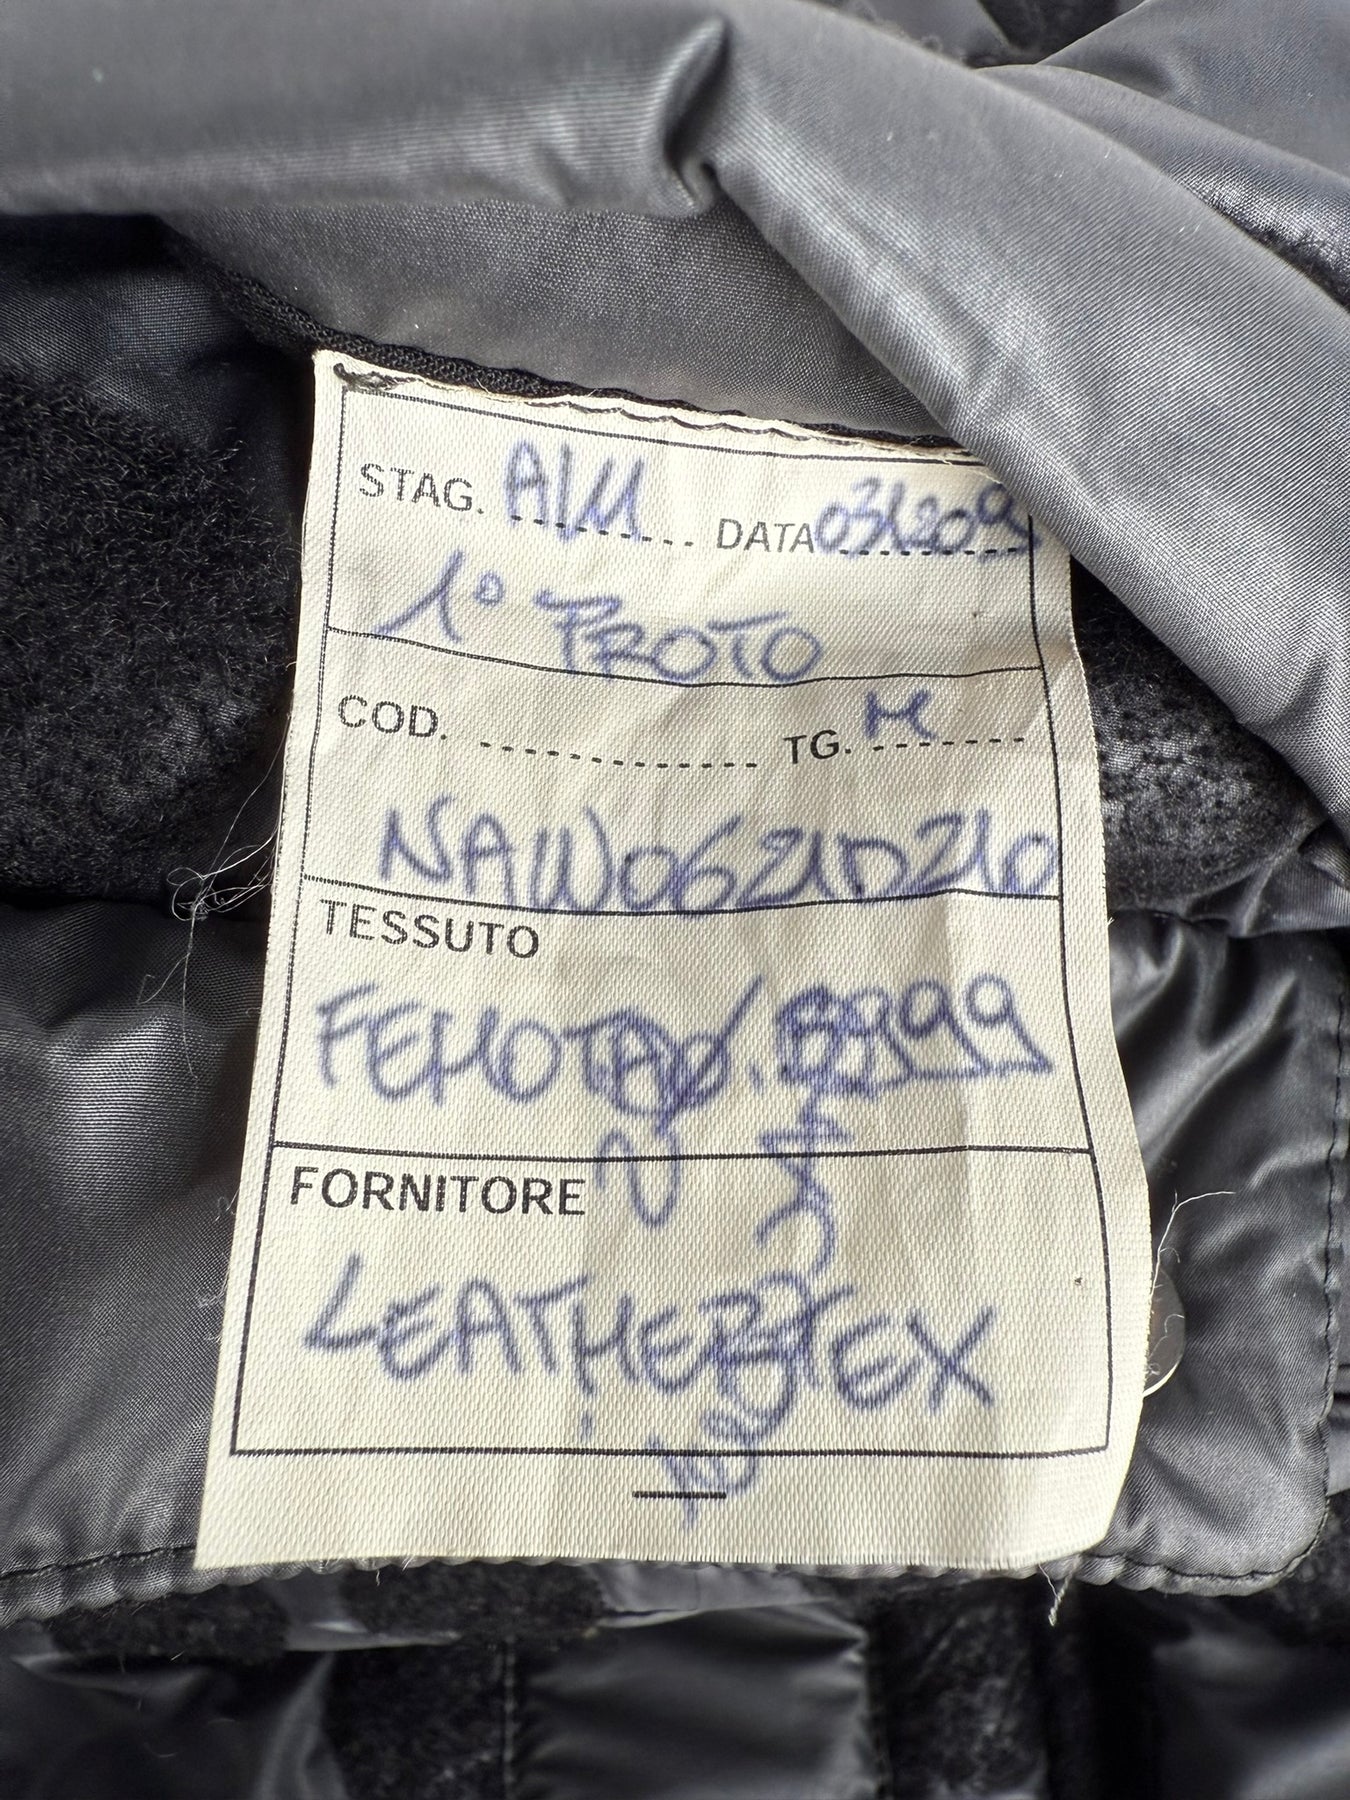 STAG. A/U DATA 03/209
1° PROTO
COD. TG. M
NAW0621D210
TESSUTO
9999
FORNITORE
LEATHERTEX